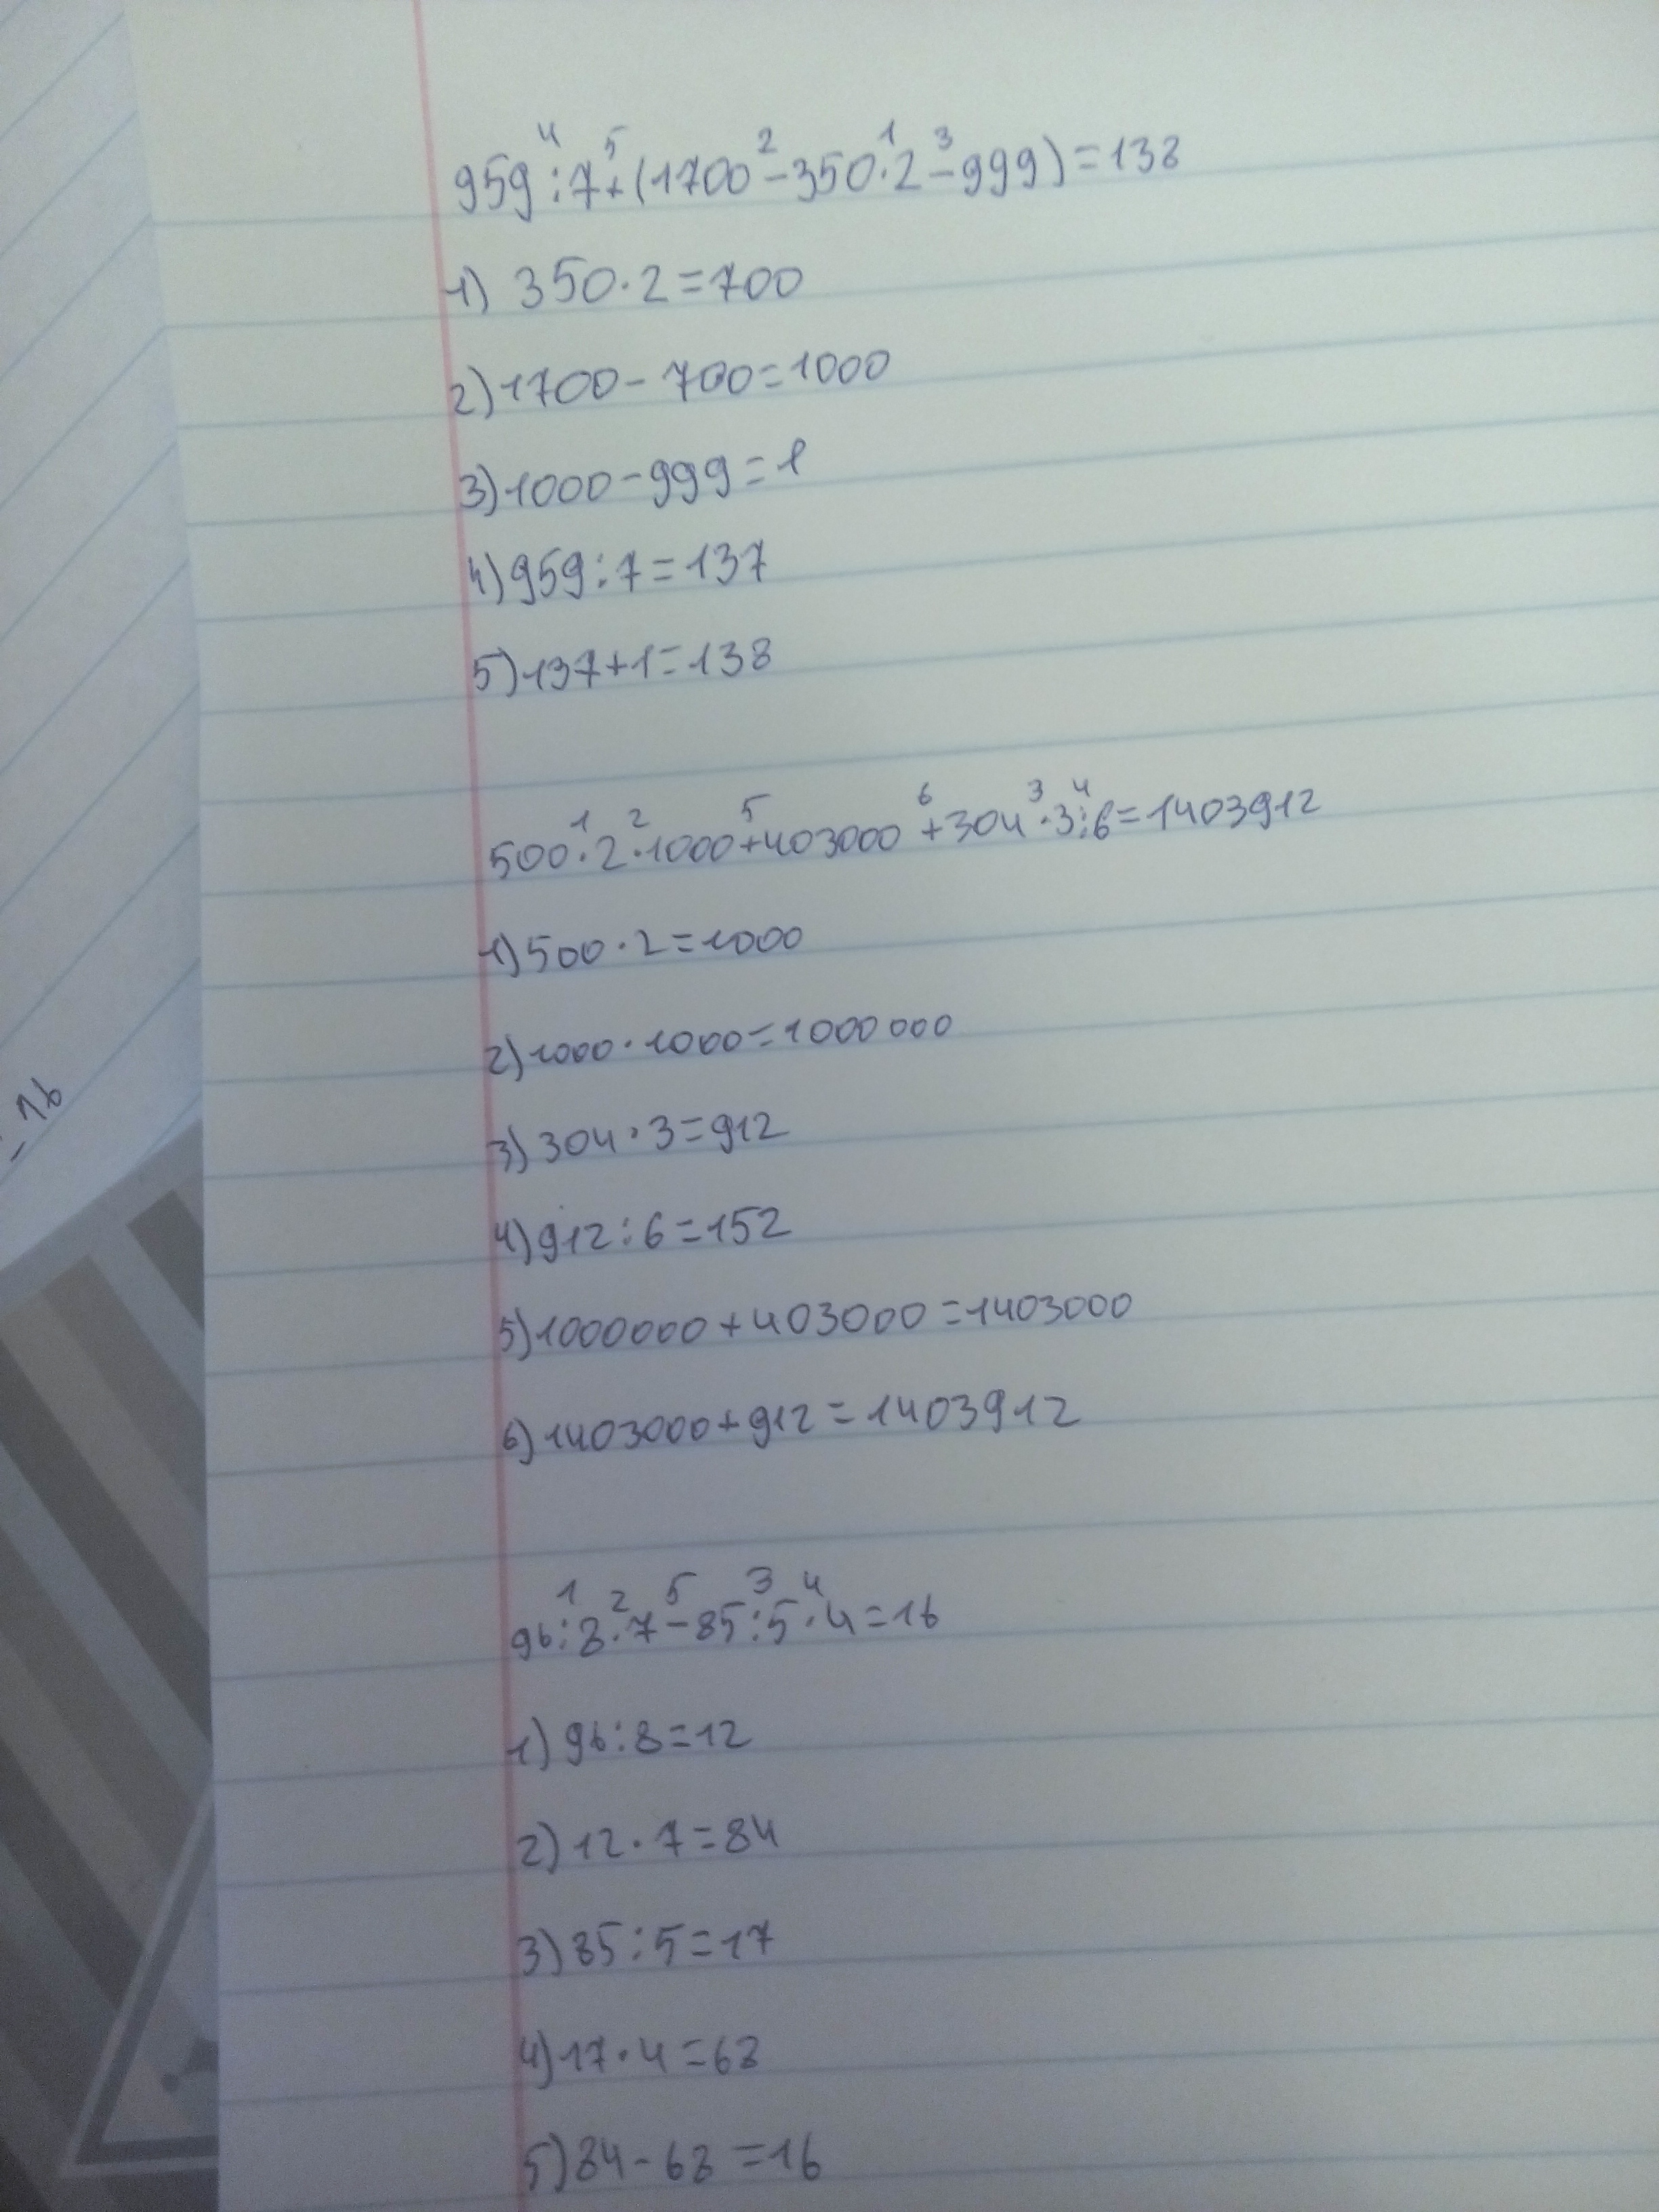 959:7+(1700-350·2-999)=138
1) 350·2=700
2) 1700-700=1000
3) 1000-999=1
4) 959:7=137
5) 137+1=138
500·2·1000+403000+304·3:6=1403912
1) 500·2=1000
2) 1000·1000=1000 000
3) 304·3=912
4) 912:6=152
5) 1000000+403000=1403000
6) 1403000+912=1403912
96:8·7-85:5·4=16
1) 96:8=12
2) 12·7=84
3) 85:5=17
4) 17·4=68
5) 84-68=16